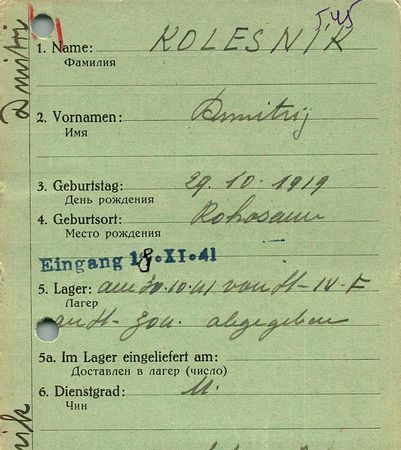 5.45
1. Name: KOLESNIK
Фамилия
Dmitrij
2. Vornamen: Dmitrij
Имя
3. Geburtstag: 29. 10. 1919
День рождения
4. Geburtsort:
Место рождения
Eingang 18.XI.41
5. Lager: am 30.10.41 von St-IV-F
Лагер
an St- 304. abgegeben
5a. Im Lager eingeliefert am:
Доставлен в лагер (число)
6. Dienstgrad:
Чин